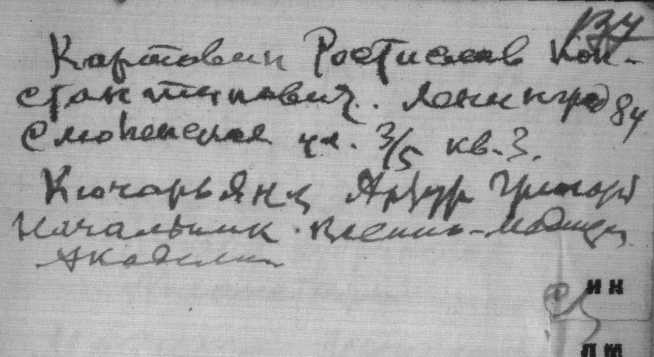 Картавин Ростислав Кон-
стантинович. Ленинград
84
Смоленская ул. 3/5 кв. 3.
Кючарьянц Артур Григорь
Начальник Военно-медиц
Академии
ин